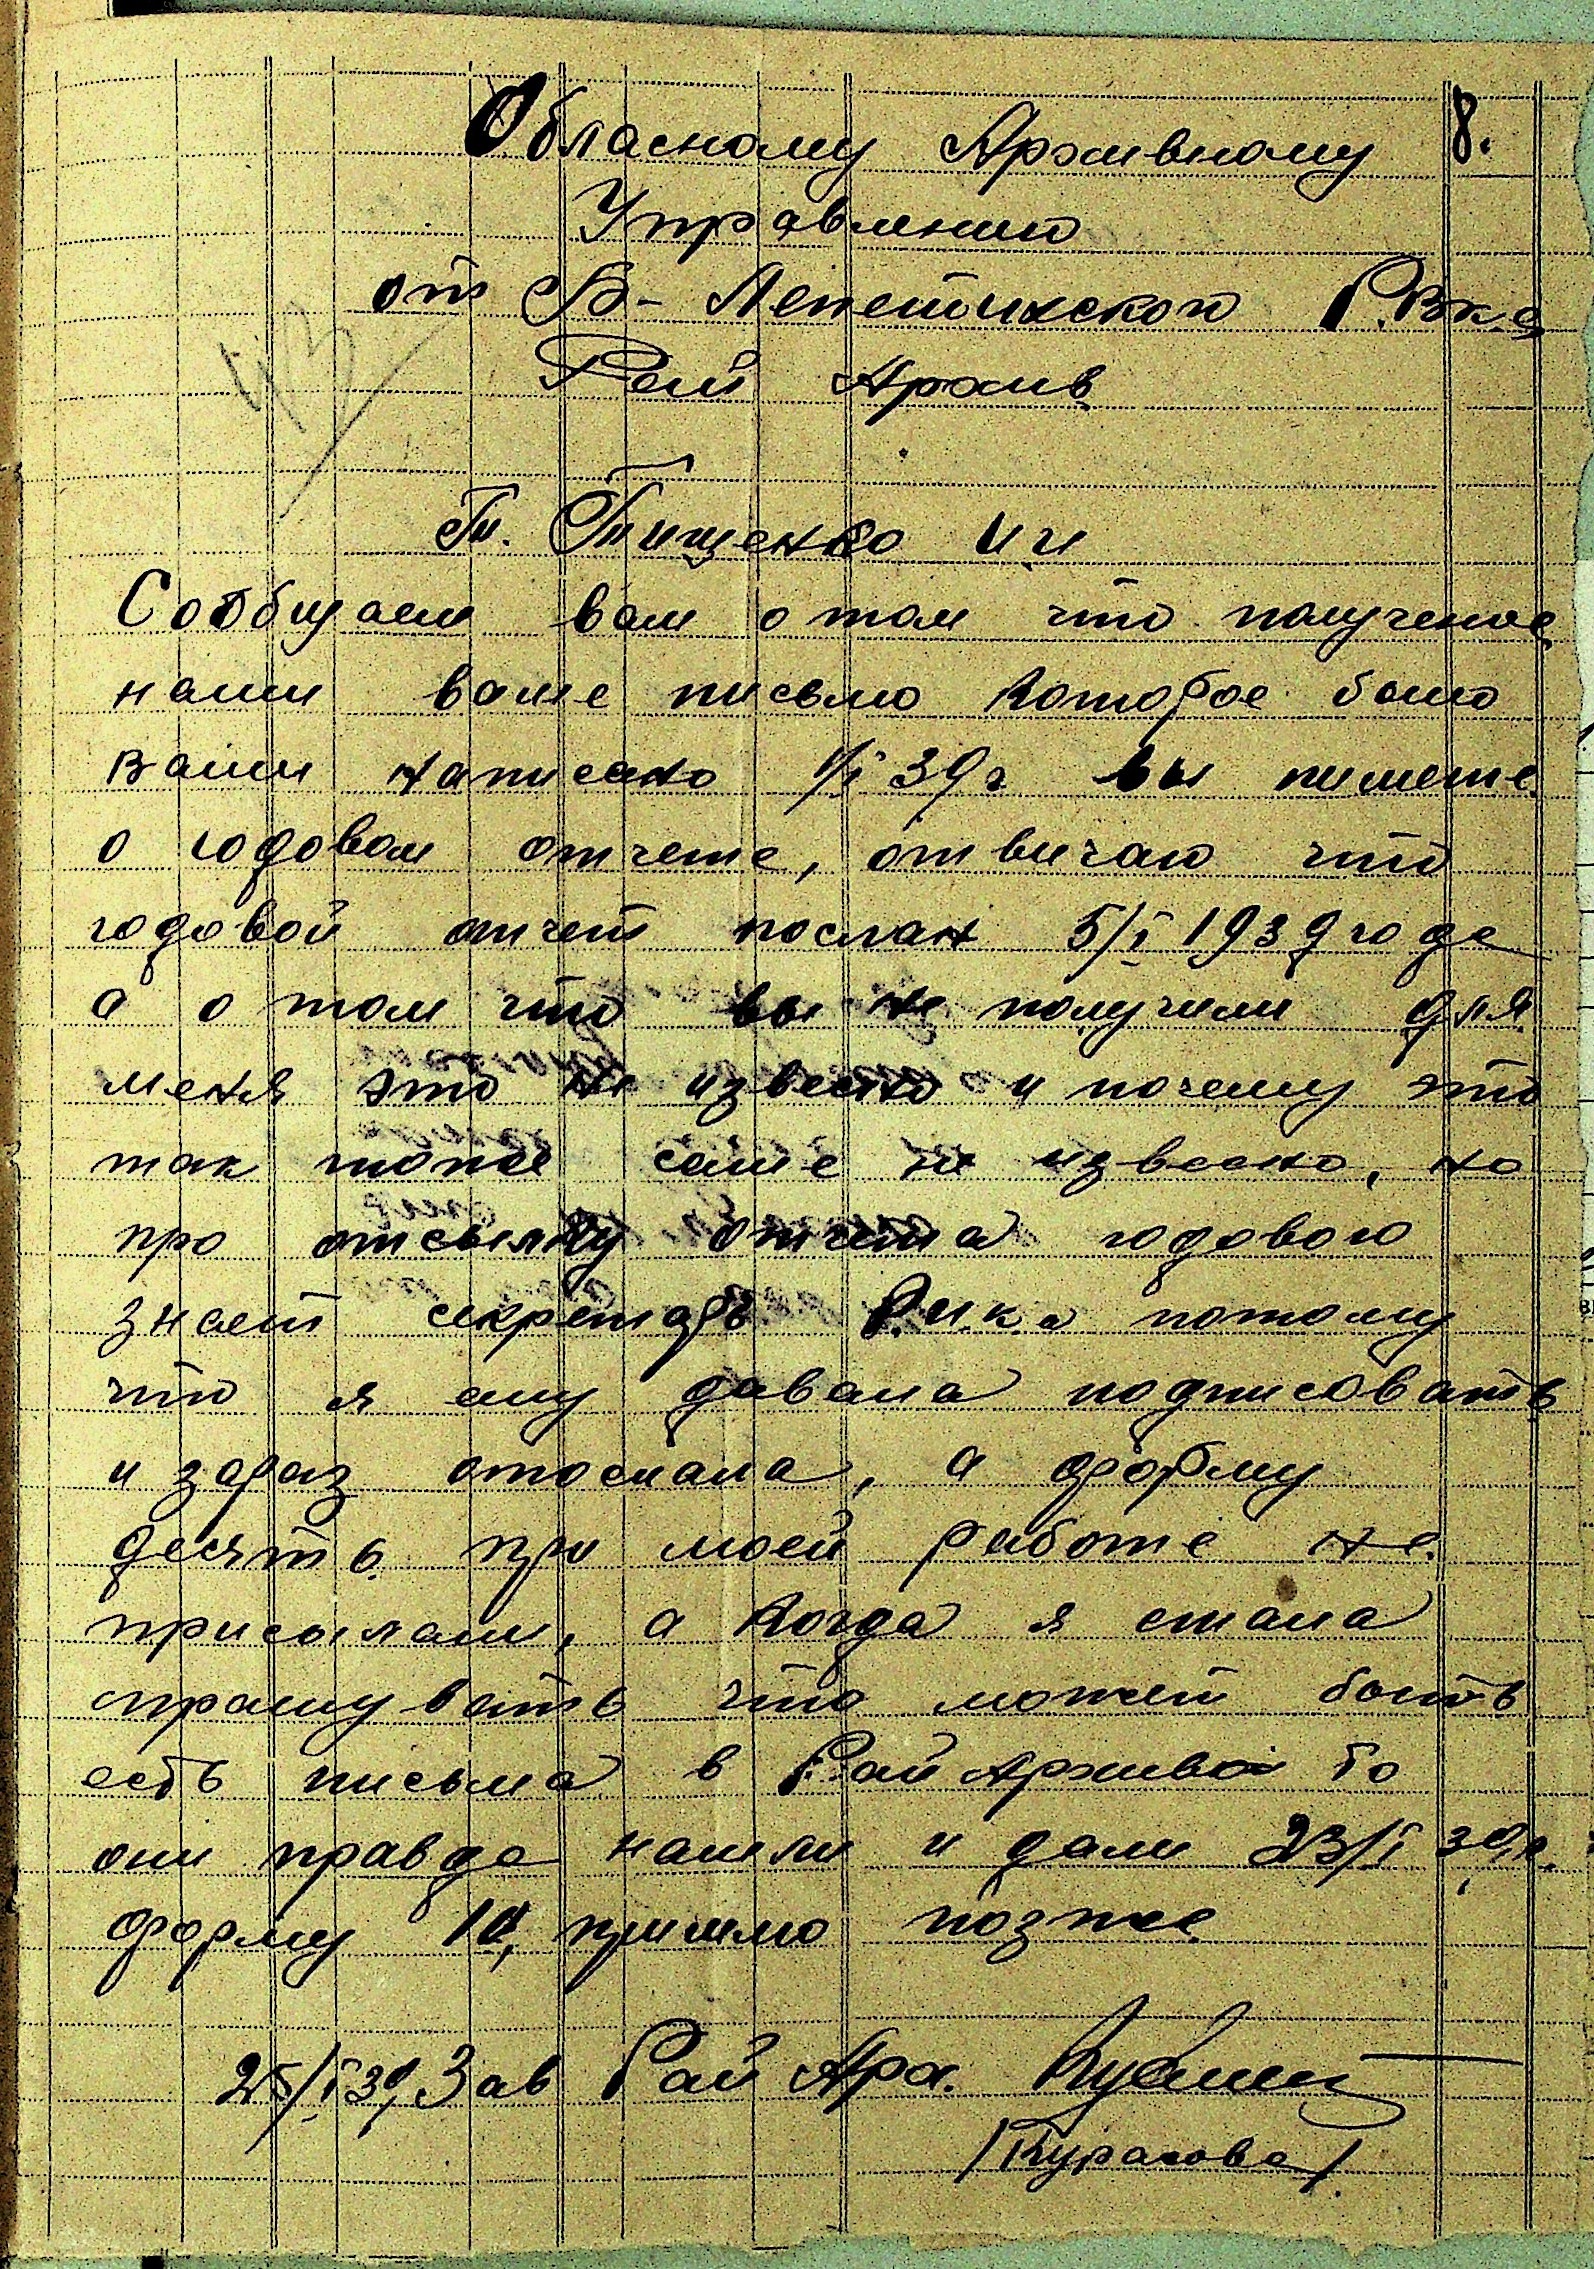 Обласному Архивному 8.
Управлению
от В-Лепетихского
Рай Архив
Т. Тищенко И И
Сообщаем вам о том что получено
нами ваше письмо которое было
вами написано 39 г вы пишете
о годовом отчете, отвичаю что
годовой отчет послан 5/I 1939 года
а о том что вы не получили для
меня это не известно и почему это
так тоже не известно, но
про отсылку отчета годового
знает секретарь Р.И.К.а потому
что я ему давала подписовать
и зараз отослала, а форму
десять при моей работе не
присылали, а когда я стала
спрашувать что может быть
есть письма в Рай Архива то
они правда нашли и дали 23/I 39 г.
форму 10, пришлю позже
25/I 39 Зав Рай Арх.
/Курасова/